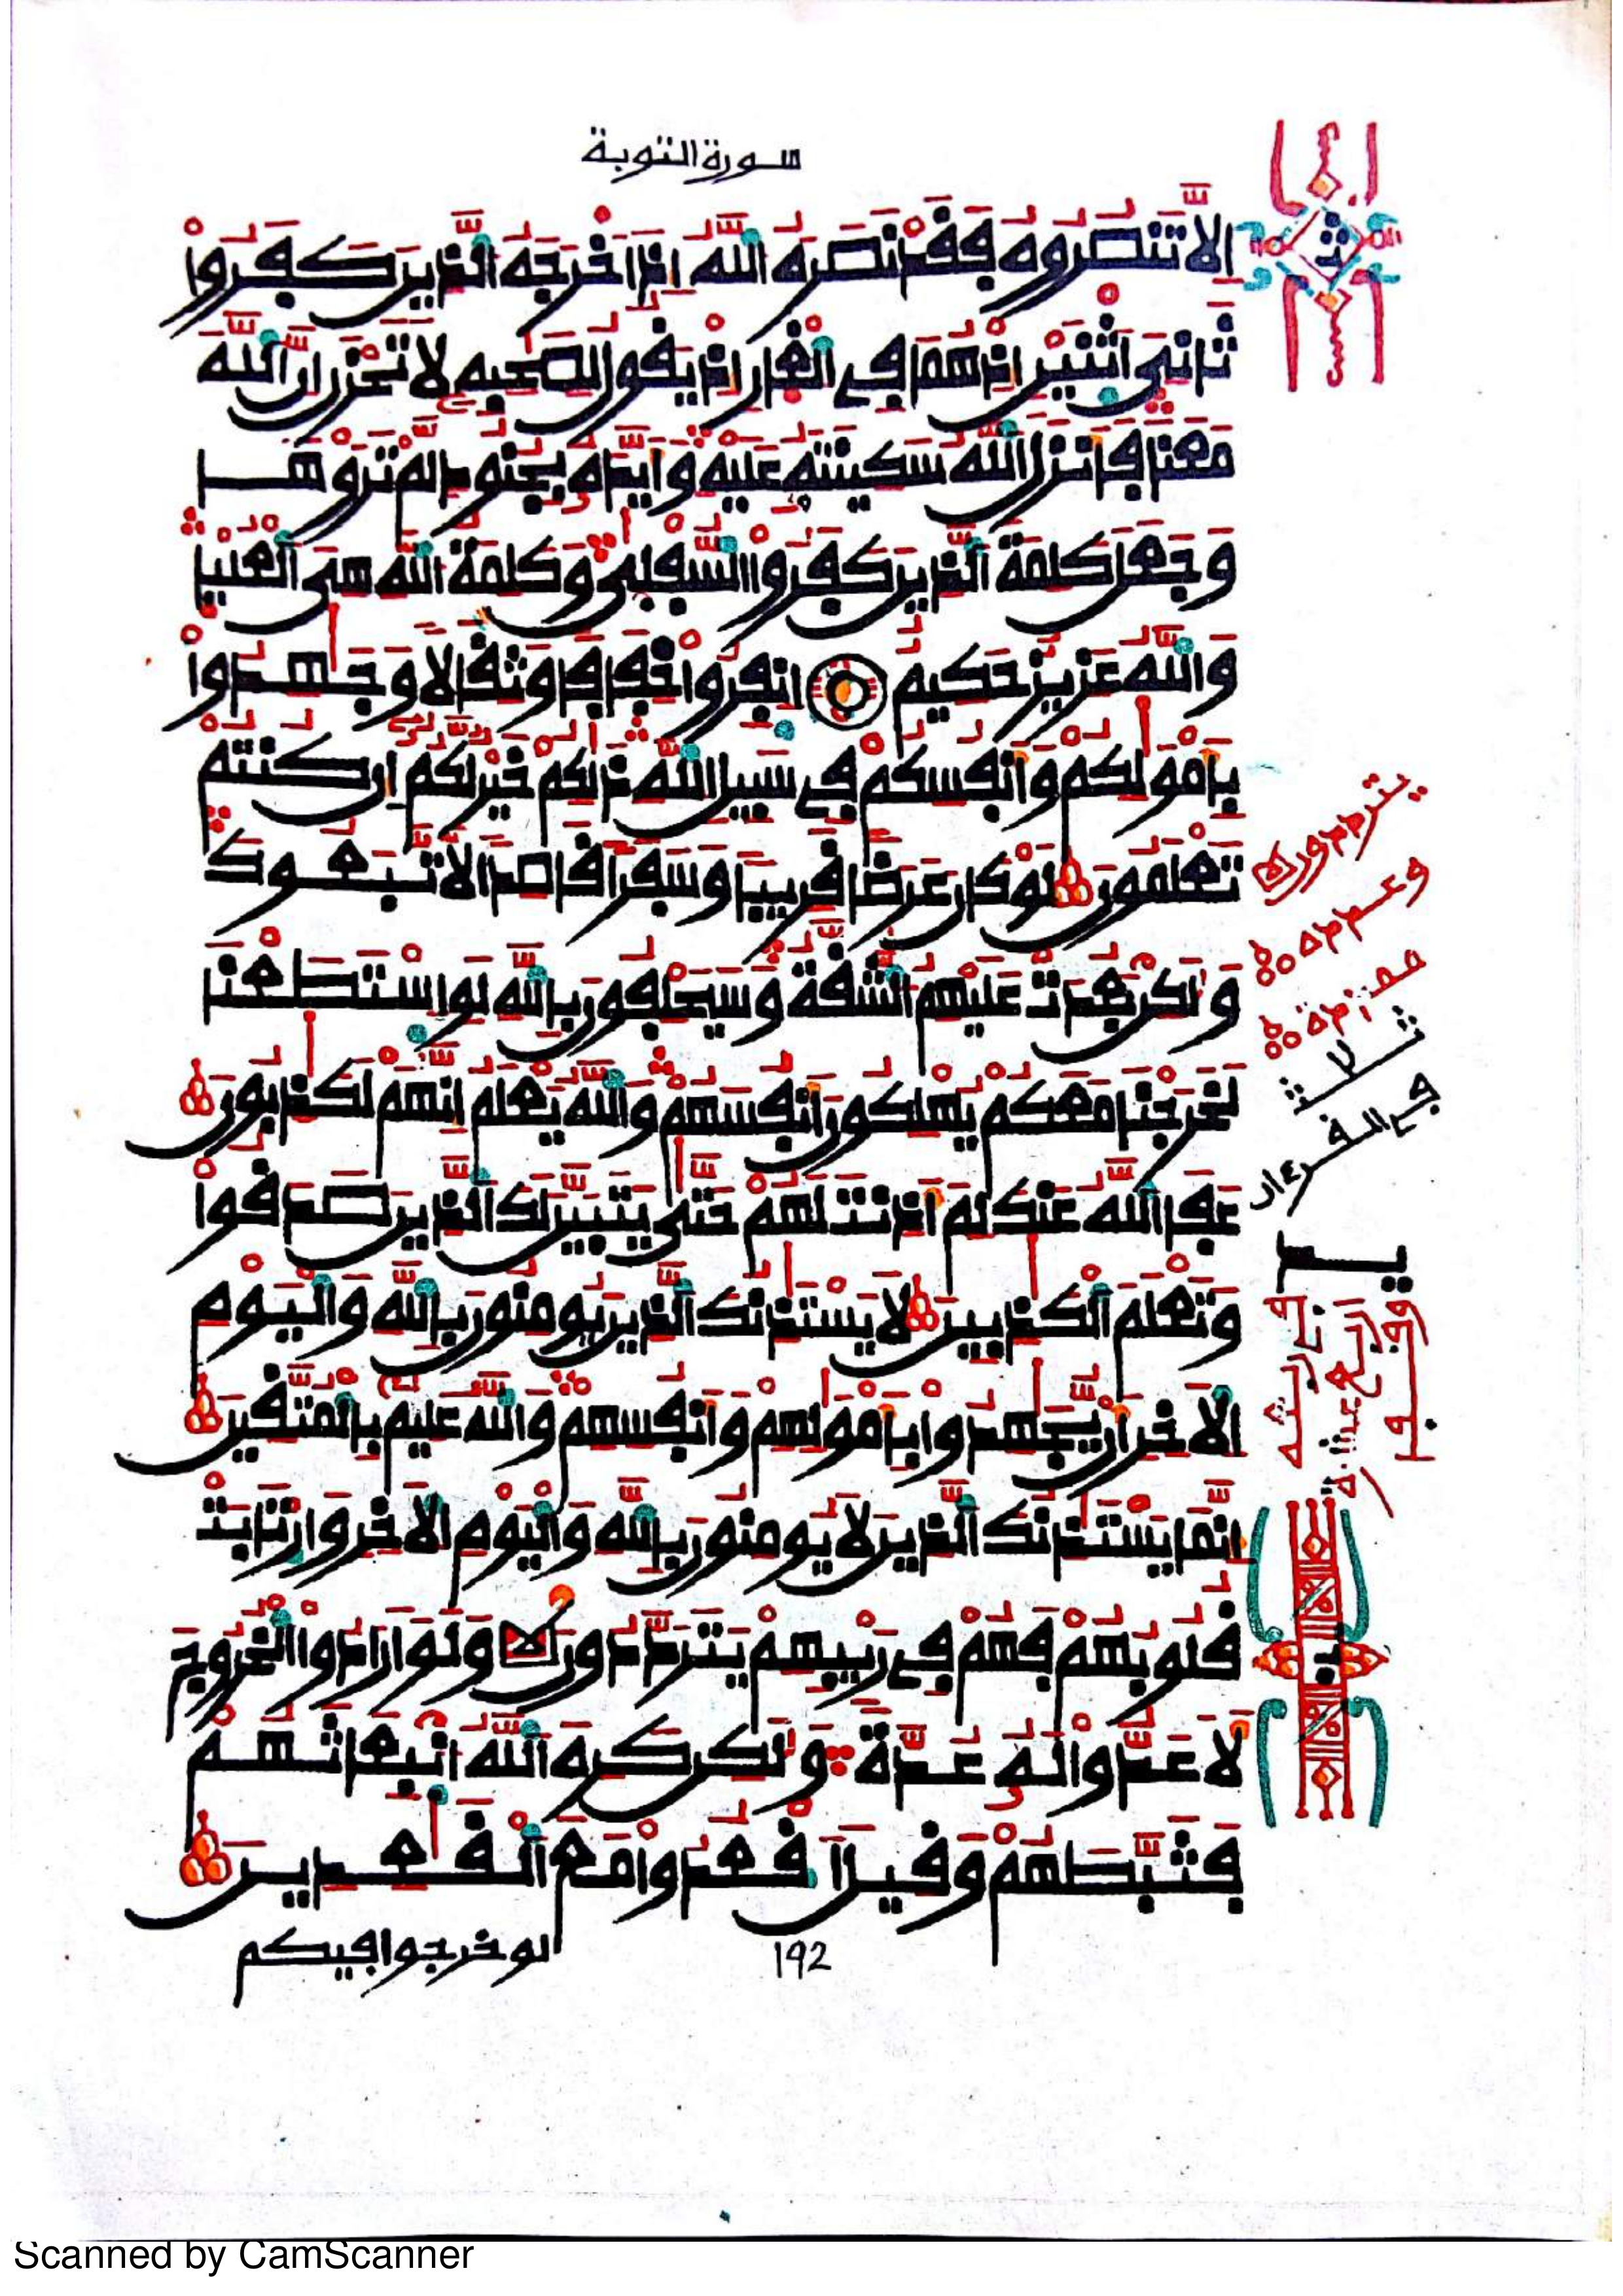 سورة التوبة
الا تنصروه فقد نصره الله اذ اخرجه الذين كفروا
ثاني اثنين اذ هما في الغار اذ يقول لصحبه لا تحزن ان الله
معنا فانزل الله سكينته عليه وايده بجنود لم تروها
وجعل كلمة الذين كفروا السفلى وكلمة الله هي العليا
والله عزيز حكيم انفروا خفافا وثقالا وجهدوا
بامولكم وانفسكم في سبيل الله ذلكم خير لكم ان كنتم
تعلمون لو كان عرضا قريبا وسفرا قاصدا لاتبعوك
ولكن بعدت عليهم الشقة وسيحلفون بالله لو استطعنا
لخرجنا معكم يهلكون انفسهم والله يعلم انهم لكذبون
عفا الله عنك لم اذنت لهم حتى يتبين لك الذين صدقوا
وتعلم الكذبين لا يستذنك الذين يومنون بالله واليوم
الاخر ان يجهدوا بامولهم وانفسهم والله عليم بالمتقين
انما يستذنك الذين لا يومنون بالله واليوم الاخر وارتابت
قلوبهم فهم في ريبهم يترددون ولو ارادوا الخروج
لاعدوا له عدة ولكن كره الله انبعاثهم
فثبطهم وقيل اقعدوا مع القعدين
لو خرجوا فيكم
192
ث
يترددون
ثلاث
في القرءان
Scanned by CamScanner